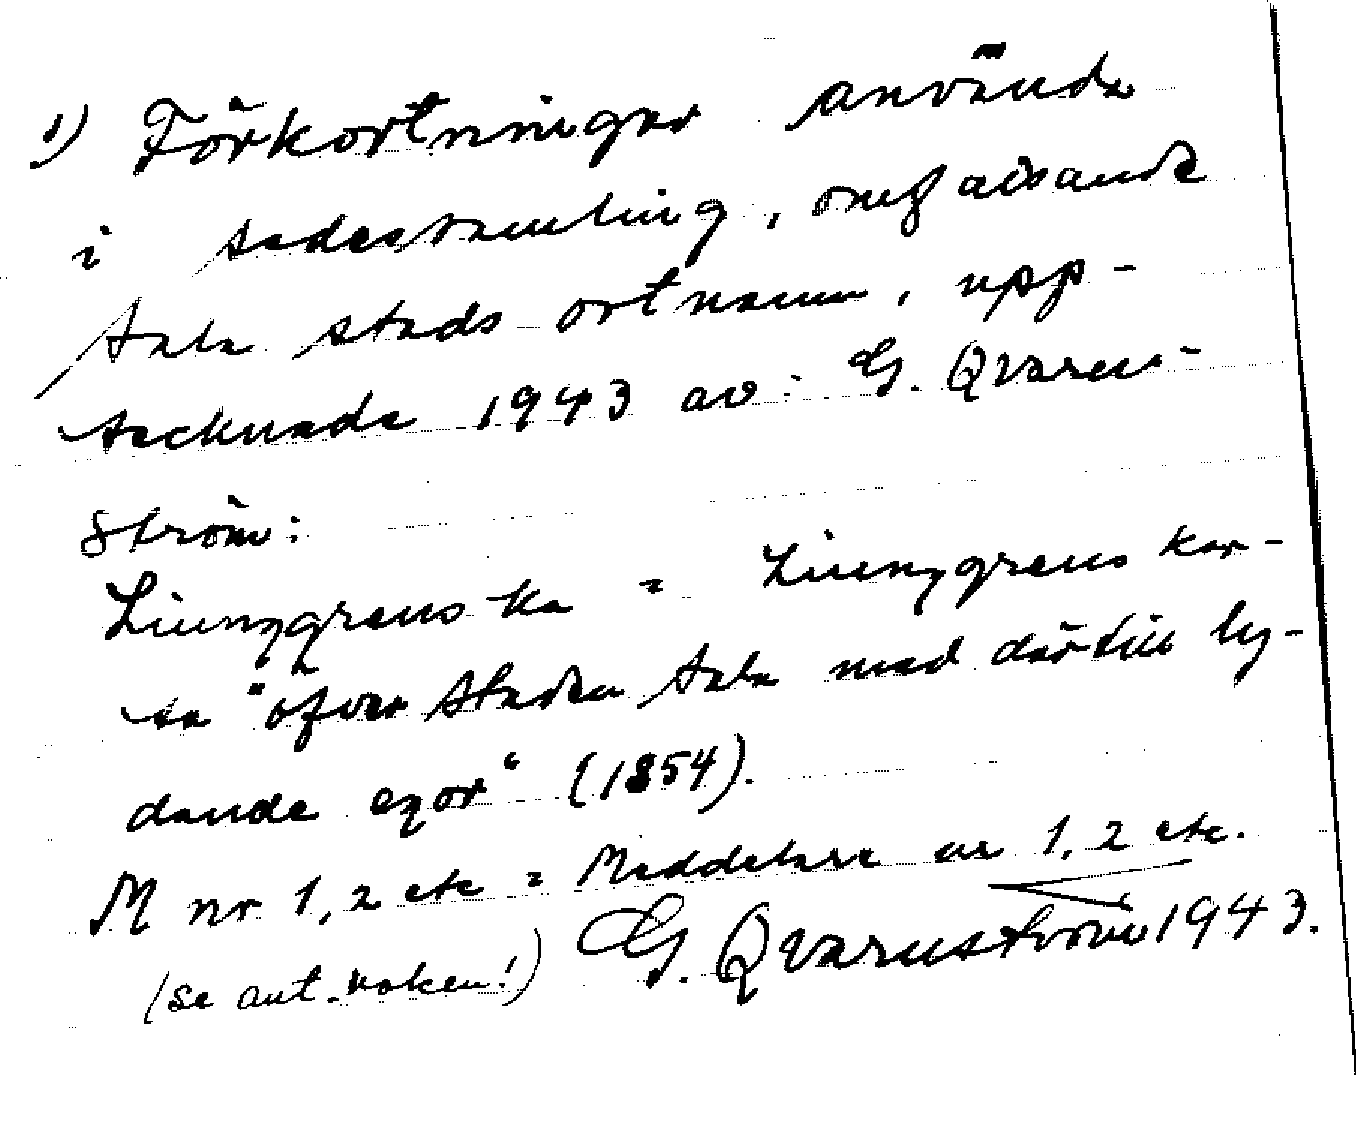 1) Förkortningar använda
i sedessamling, omfattande
Sala stads ortnamn, upp-
tecknade 1943 av: G. Qvarn-
ström:
Ljunggrens ka = Ljunggrens kar-
ta "öfver staden Sala med därtill ly-
dande egor" (1854).
M nr 1, 2 etc = Meddelare nr 1, 2 etc.
(se ant.boken!) G. Qvarnström 1943.